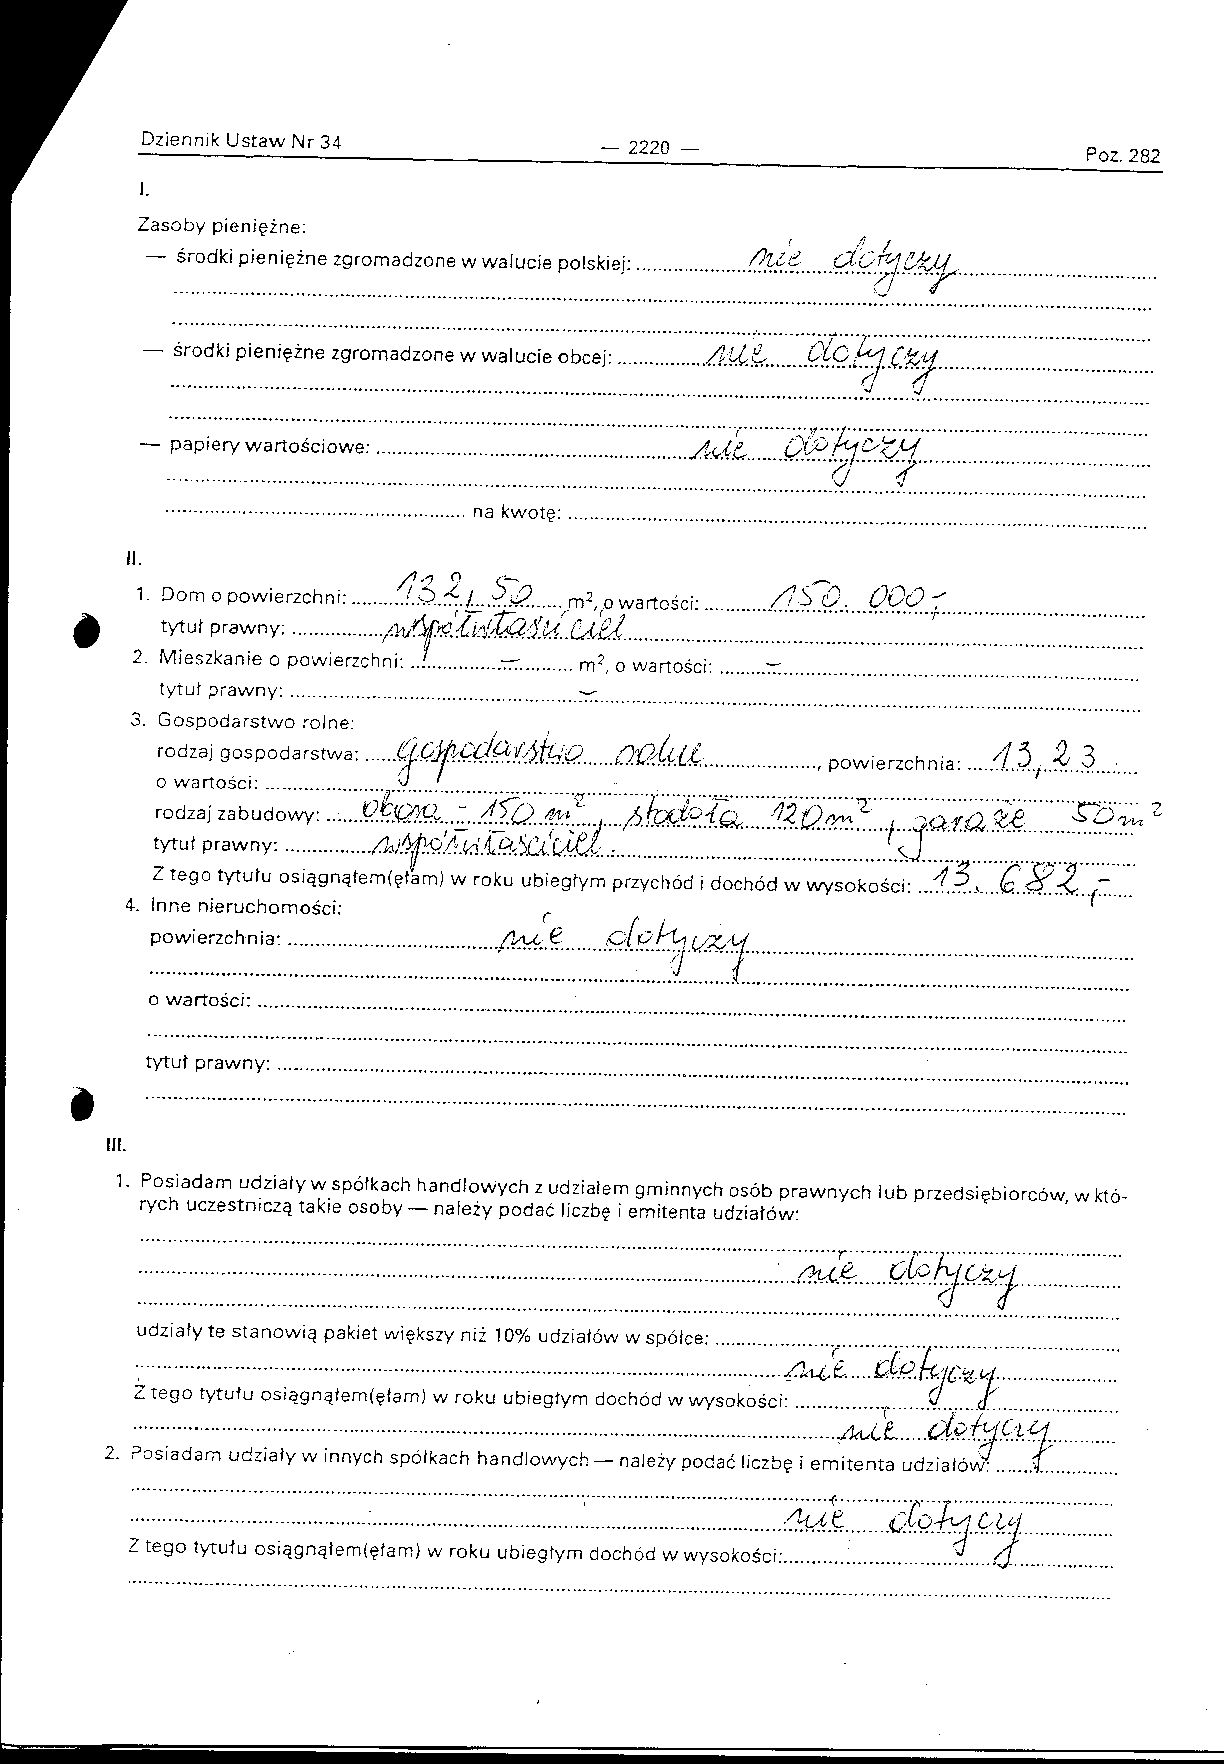 Dziennik Ustaw Nr 34 — 2220 — Poz. 282
I.
Zasoby pieniężne:
— środki pieniężne zgromadzone w walucie polskiej: nie dotyczy
— środki pieniężne zgromadzone w walucie obcej: nie dotyczy
— papiery wartościowe: nie dotyczy
na kwotę:
II.
1. Dom o powierzchni: 132,50 m², o wartości: 150.000,-
tytuł prawny: współwłaściciel
2. Mieszkanie o powierzchni: — m², o wartości: —
tytuł prawny: —
3. Gospodarstwo rolne:
rodzaj gospodarstwa: gospodarstwo rolne, powierzchnia: 13,23
o wartości:
rodzaj zabudowy: obora - 150 m², stodoła 120 m², garaże 50 m²
tytuł prawny: współwłaściciel.
Z tego tytułu osiągnąłem(ęłam) w roku ubiegłym przychód i dochód w wysokości: 13.682,-
4. Inne nieruchomości:
powierzchnia: nie dotyczy
o wartości:
tytuł prawny:
III.
1. Posiadam udziały w spółkach handlowych z udziałem gminnych osób prawnych lub przedsiębiorców, w któ-
rych uczestniczą takie osoby — należy podać liczbę i emitenta udziałów:
nie dotyczy
udziały te stanowią pakiet większy niż 10% udziałów w spółce:
nie dotyczy
Z tego tytułu osiągnąłem(ęłam) w roku ubiegłym dochód w wysokości:
nie dotyczy
2. Posiadam udziały w innych spółkach handlowych — należy podać liczbę i emitenta udziałów:
nie dotyczy
Z tego tytułu osiągnąłem(ęłam) w roku ubiegłym dochód w wysokości: